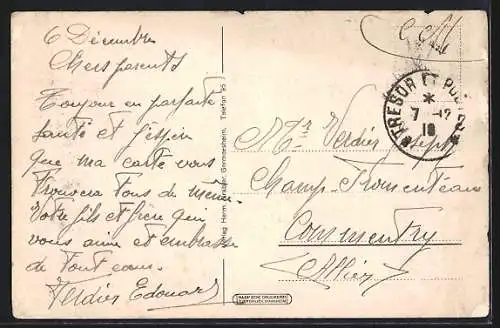 6 Décembre
Chers parents
Toujour en parfaite
santé et j'espère
que ma carte vous
trouvera tous de même.
Votre fils et frère qui
vous aime et embrasse
de tout cœur.
Verdier Edouard
C.M
TRESOR ET POSTES
*
7 -12
18
Mr Verdier Joseph
Champ-Fromenteau
Commentry
(Allier)
Germersheim. Telefon 95